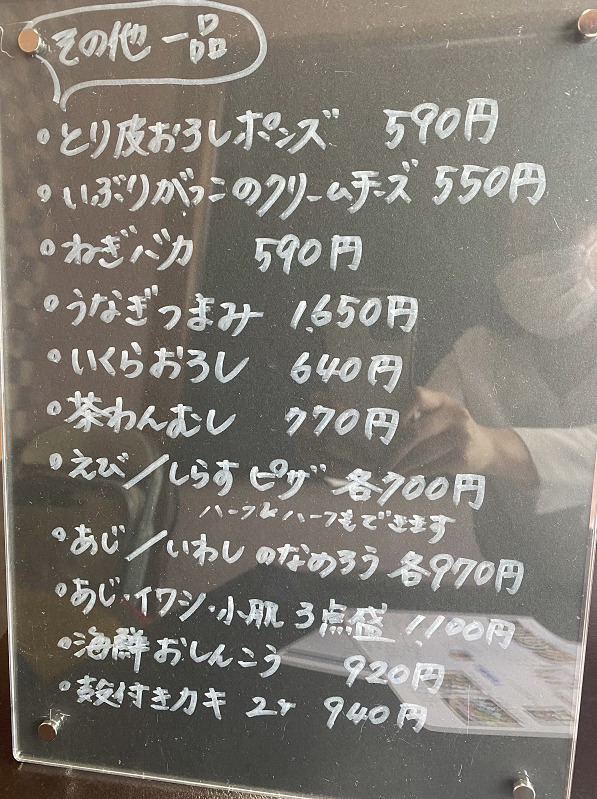 その他一品
・とり皮おろしポンズ 590円
・いぶりがっこのクリームチーズ 550円
・ねぎバカ 590円
・うなぎつまみ 1,650円
・いくらおろし 640円
・茶わんむし 770円
・えび/しらすピザ 各700円
ハーフ&ハーフもできます
・あじ/いわしのなめろう 各970円
・あじ・イワシ・小肌 3点盛 1,100円
・海鮮おしんこう 920円
・殻付きカキ 2ヶ 940円